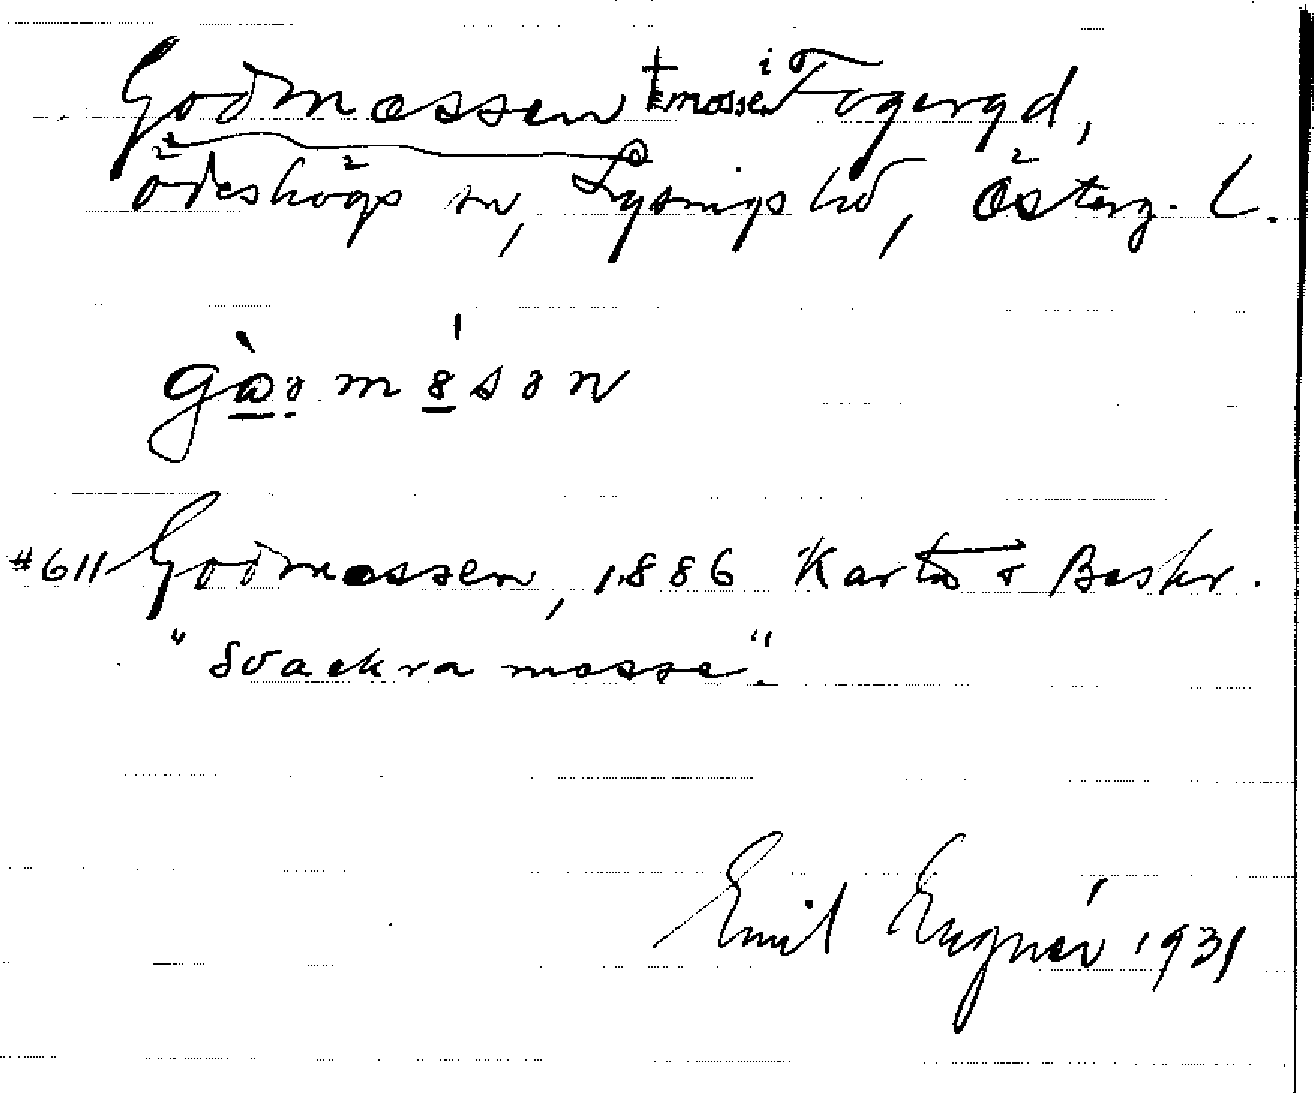 Godmossen + mossen i Fogeryd,
Ödeshögs sn, Lysings hd, Österg. L.
#611 Godmossen, 1886 Karta & Beskr.
"Svackra mosse".
Emil 1931